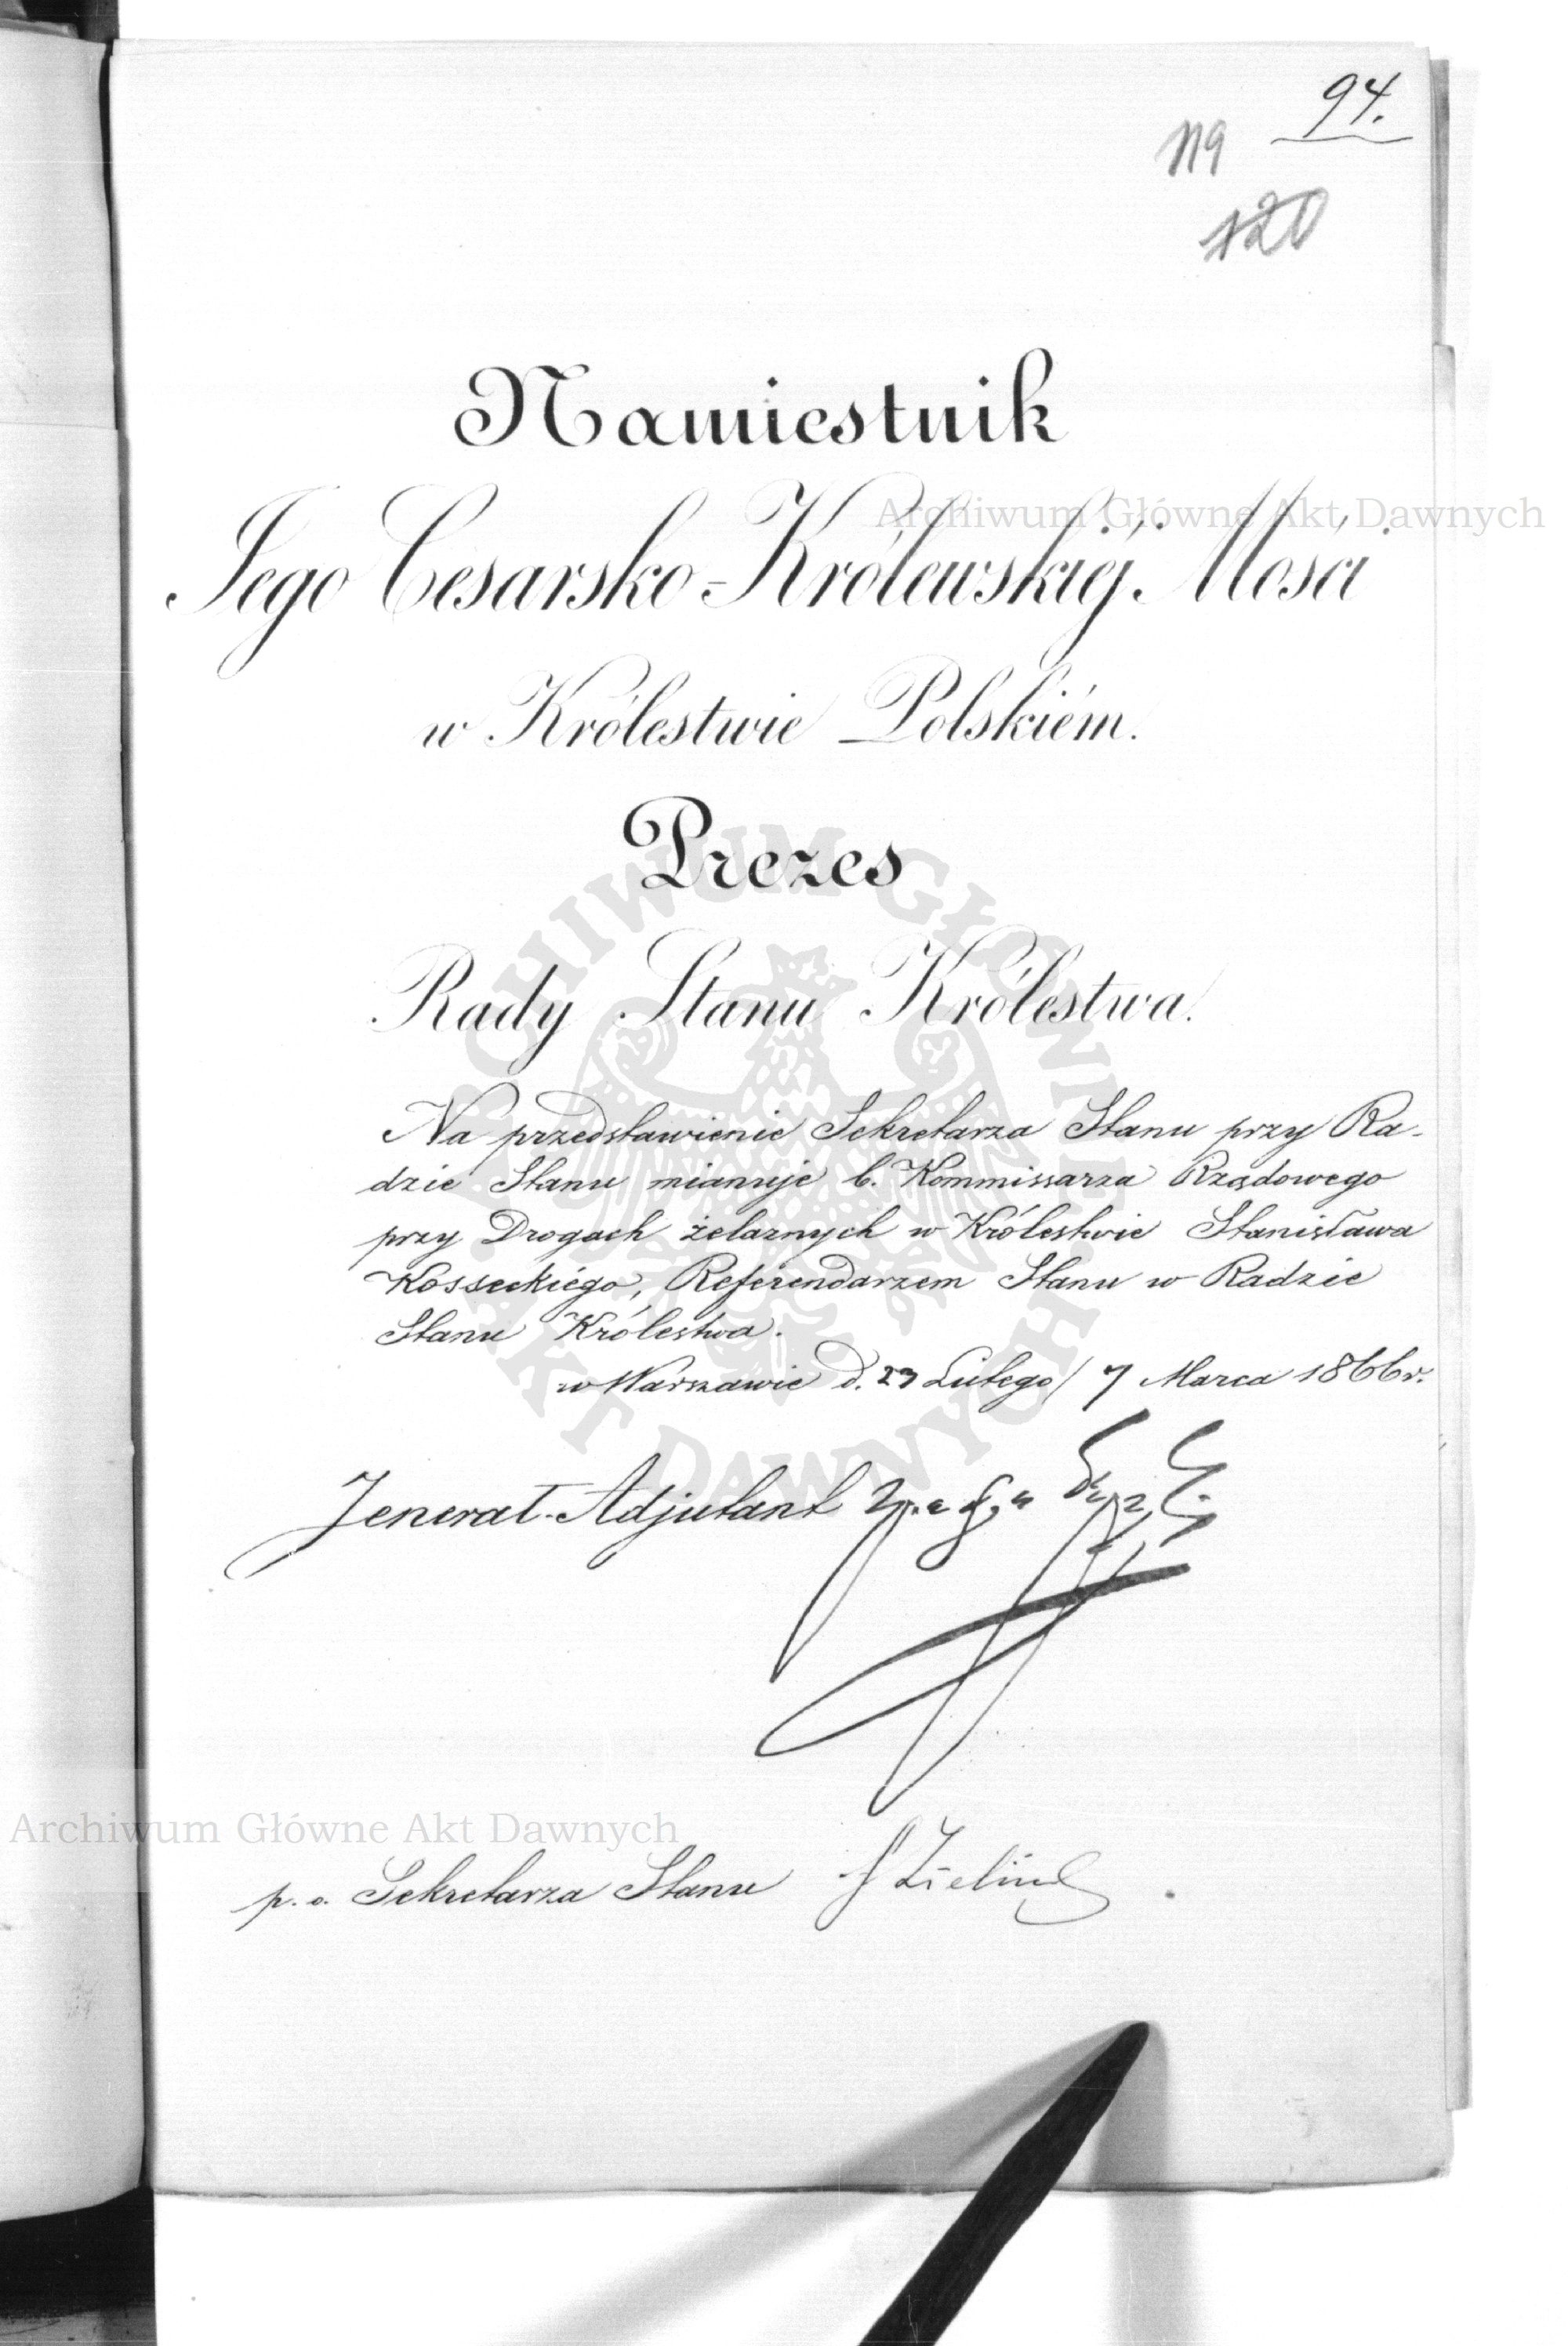 94.
119
120
Namiestnik
Jego Cesarsko-Królewskiéj Mości
w Królestwie Polskiém.
Prezes
Rady Stanu Królestwa.
Na przedstawienie Sekretarza Stanu przy Ra-
dzie Stanu mianuje b. Kommissarza Rządowego
przy Drogach żelaznych w Królestwie Stanisława
Kosseckiégo, Referendarzem Stanu w Radzie
Stanu Królestwa.
w Warszawie d. 23 Lutego / 7 Marca 1866 r.
Jenerał-Adjutant
p. o. Sekretarza Stanu
Archiwum Główne Akt Dawnych
Archiwum Główne Akt Dawnych
ARCHIWUM GŁÓWNE AKT DAWNYCH